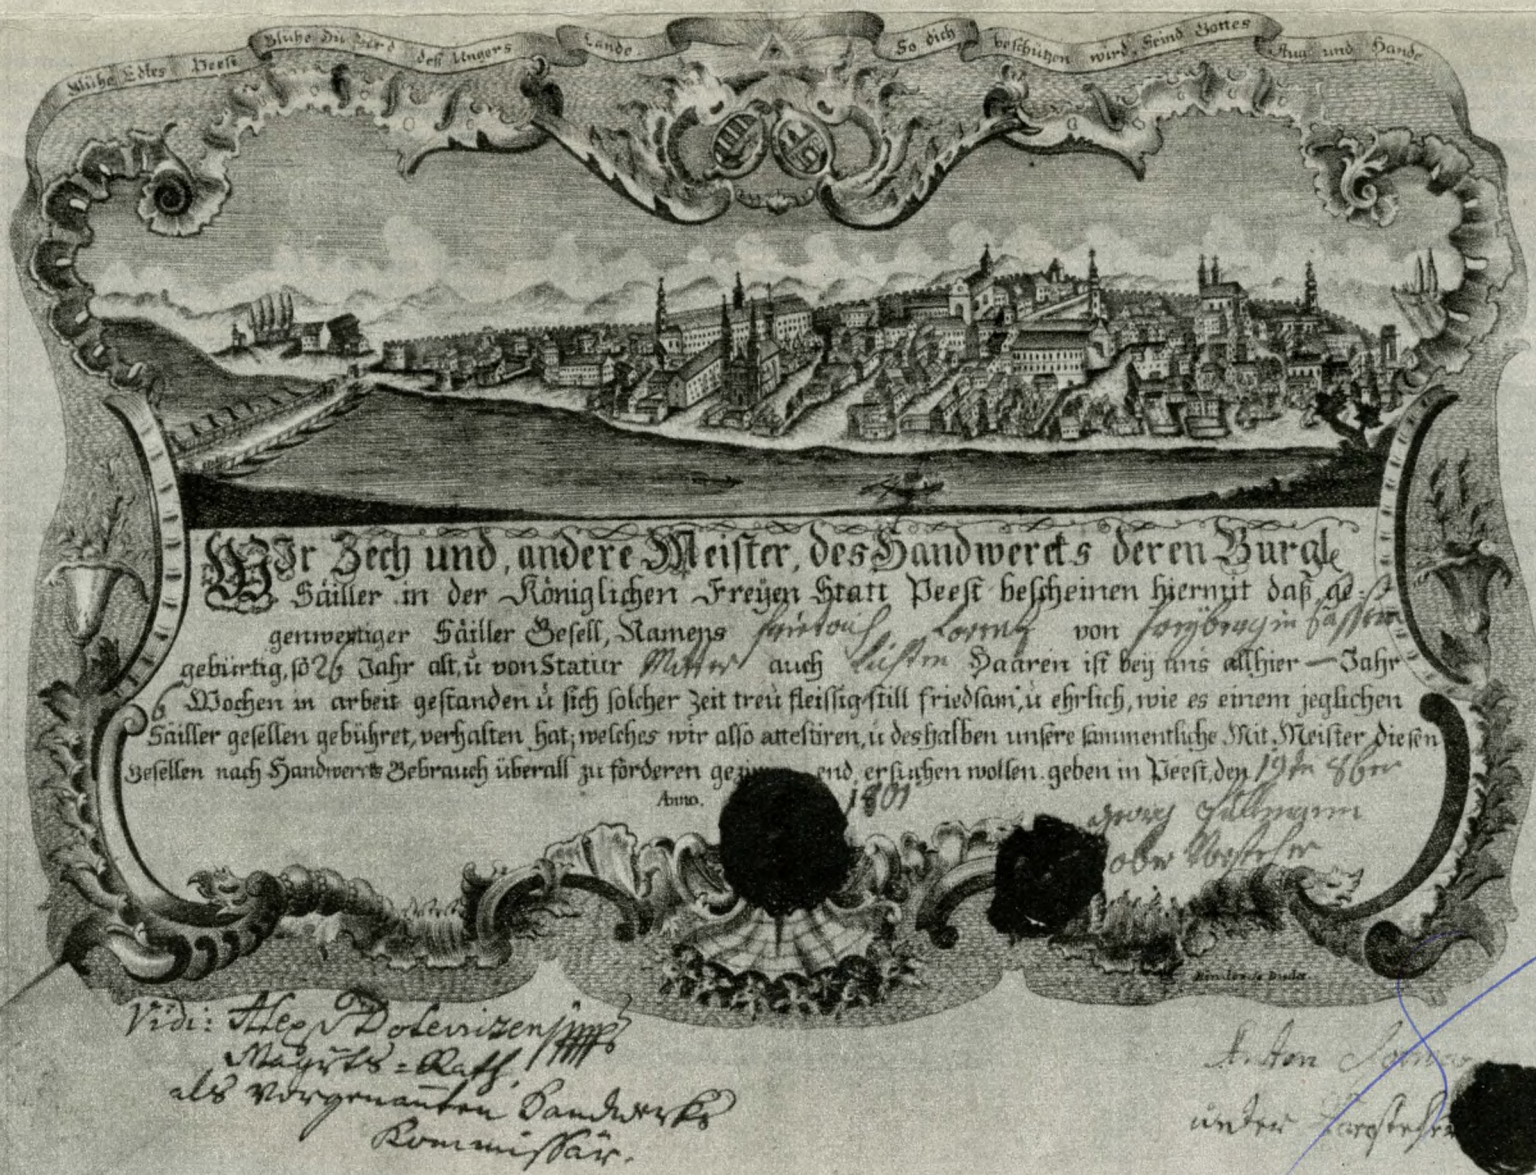 Blühe Edles Peest Blühe Du Zierd deß Ungers Lande So dich beschützen wird, seind Gottes Aug und Hande
Wir Zech und, andere Meister, des Handwercks deren Burgl
Säiller in der Königlichen Freÿen Statt Peest bescheinen hiermit daß ge=
genwertiger Säiller Gesell, Namens Friedrich Lorenz von Freÿberg in Sassen
gebürtig, so 26 Jahr alt, ü von Statur Mitter auch lichten Haaren ist beÿ uns allhier — Jahr
6 Wochen in arbeit gestanden ü sich solcher Zeit treü fleissig still friedsam, ü ehrlich, wie es einem jeglichen
Säiller gesellen gebühret, verhalten hat; welches wir also attestiren, ü deshalben unsere sammentliche Mit Meister diesen
Gesellen nach Handwercks Gebrauch überall zu förderen end ersuchen wollen. geben in Peest, den 19ten 8ber
Anno. 1801
Georg
ober Vorsteher
Vidi: Alex
Magrts=Rath,
als vorgenannten Handwerks
Kommissär.
Anton
unter Vorsteher